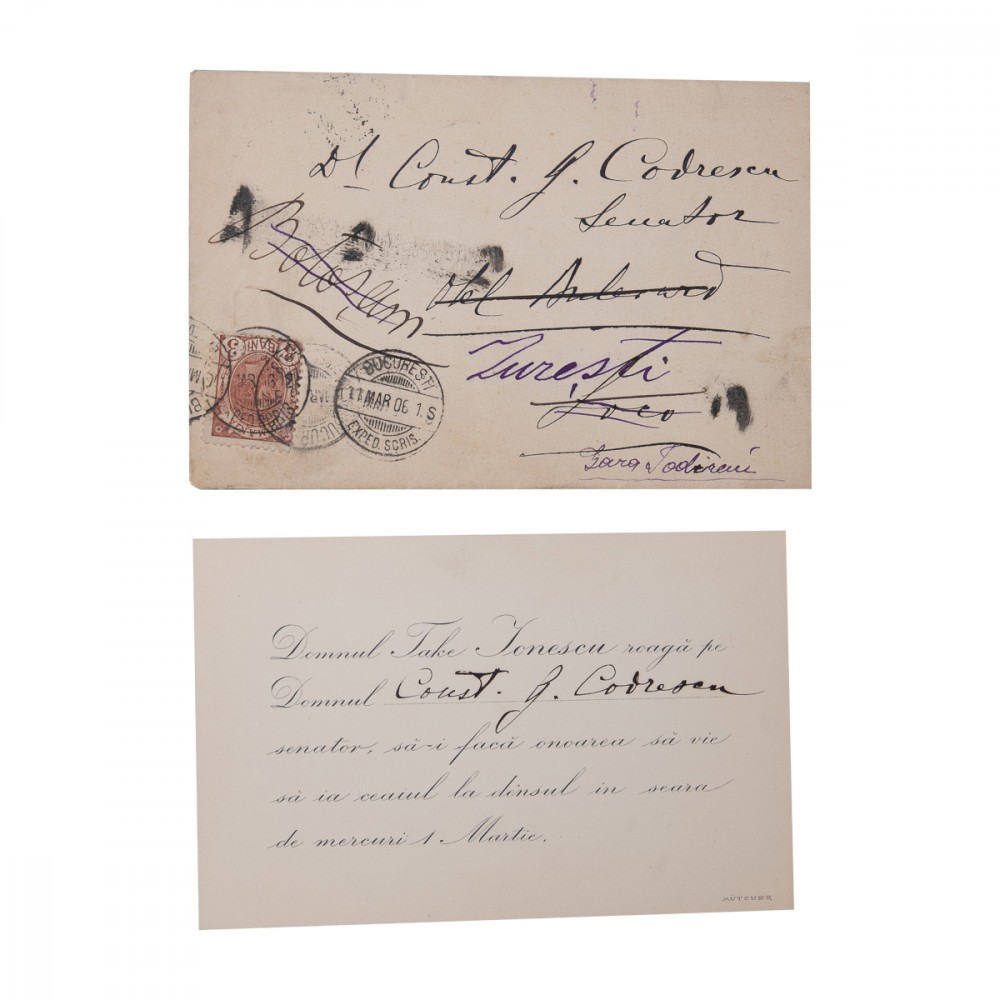 Dl Const. G. Codrescu
Senator
Botoșani Otel Bulevard
Zurești
Loco
Gara Todireni
3 BANI
BUCUREȘTI
11 MAR 06 1. S
EXPED. SCRIS.
Domnul Take Ionescu roagă pe
Domnul Const. G. Codrescu
senator, să-i facă onoarea să vie
să ia ceaiul la dênsul in seara
de mercuri 1 Martie.
MÜTZNER